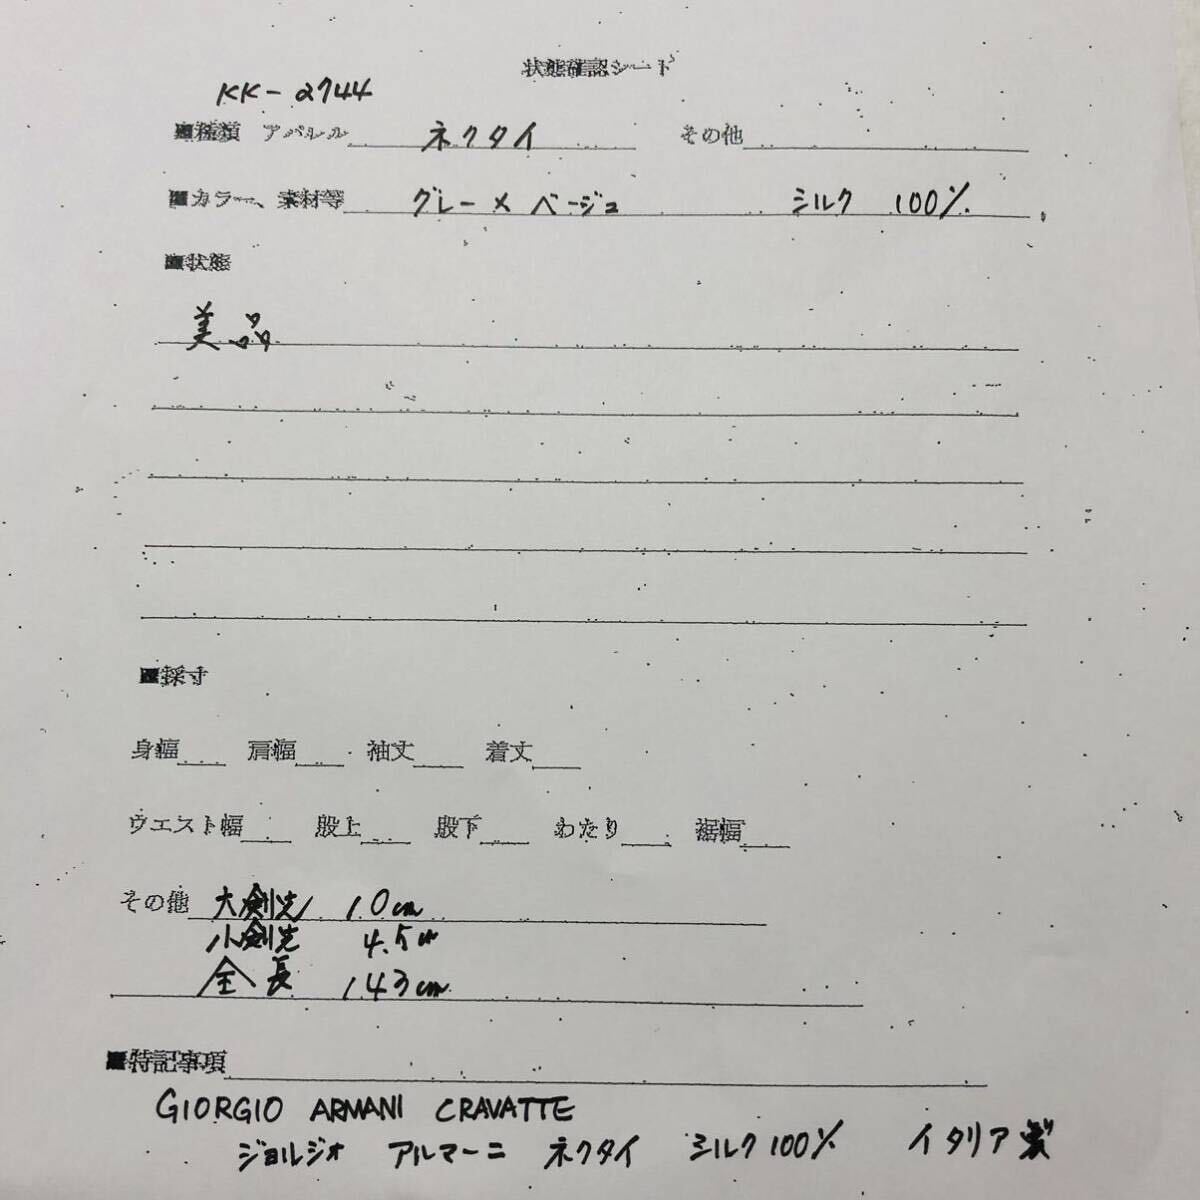 状態確認シート
KK-2744
■種類 アパレル ネクタイ その他
■カラー、素材等 グレー×ベージュ シルク 100%
■状態
美品
■採寸
身幅 肩幅 袖丈 着丈
ウエスト幅 股上 股下 わたり 裾幅
その他 大剣先 10cm
小剣先 4.5cm
全長 143cm
■特記事項
GIORGIO ARMANI CRAVATTE
ジョルジオ アルマーニ ネクタイ シルク100% イタリア製